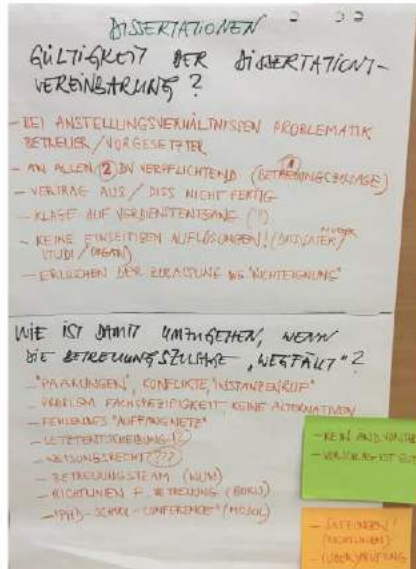 DISSERTATIONEN
GÜLTIGKEIT DER DISSERTATIONS-
VEREINBARUNG?
- BEI ANSTELLUNGSVERHÄLTNISSEN PROBLEMATIK
BETREUER/VORGESETZTER
- AN ALLEN 2 DV VERPFLICHTEND (BETREUUNGSZUSAGE)
- VERTRAG AUS / DISS NICHT FERTIG
- KLAGE AUF VERDIENSTENTGANG (?)
- KEINE EINSEITIGEN AUFLÖSUNGEN!
STUDI/ORGAN)
- ERLÖSCHEN DER ZULASSUNG "NICHTEIGNUNG"
WIE IST DAMIT UMZUGEHEN, WENN
DIE BETREUUNGSZUSAGE „WEGFÄLLT"?
- "PAARUNGEN", KONFLIKTE, "INSTANZENRUF"
- PROBLEM FACHSPEZIFIGKEIT, KEINE ALTERNATIVEN
- FEHLENDES "AUFFANGNETZ"
- LETZTENTSCHEIDUNG!?
- WEISUNGSRECHT???
- BETREUUNGSTEAM (WUM)
- RICHTLINIEN F. BETREUUNG (BOKU)
- "PHD-SCHOOL-CONFERENCE"
- KEIN AND.
- VORSCHLAG IST GUT
- SATZUNGEN!
(RICHTLINIEN)
- (ÜBER)PRÜFUNG